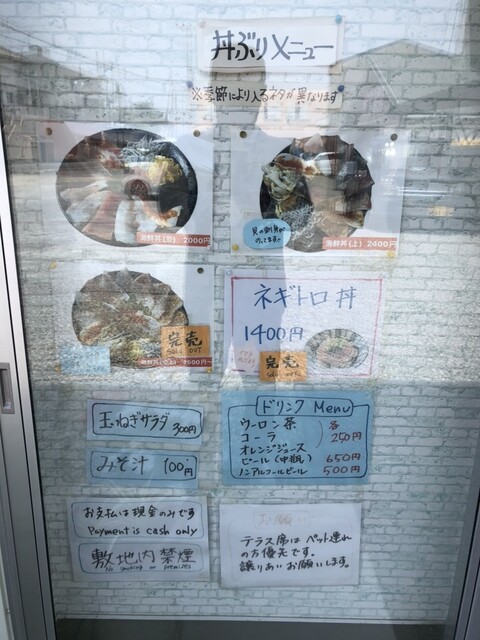 丼ぶりメニュー
※季節により入るネタが異なります
海鮮丼(並) 2000円
貝の刺身が
のってます。
海鮮丼(上) 2400円
完売
SOLD OUT
海鮮丼
ネギトロ丼
1400円
完売
SOLD OUT
玉ねぎサラダ 300円
みそ汁 100円
ドリンク Menu
ウーロン茶
コーラ
オレンジジュース
各
250円
ビール(中瓶) 650円
ノンアルコールビール 500円
お支払は現金のみです
Payment is cash only
敷地内禁煙
No smoking on premises
お願い
テラス席はペット連れ
の方優先です。
譲りあいお願いします。